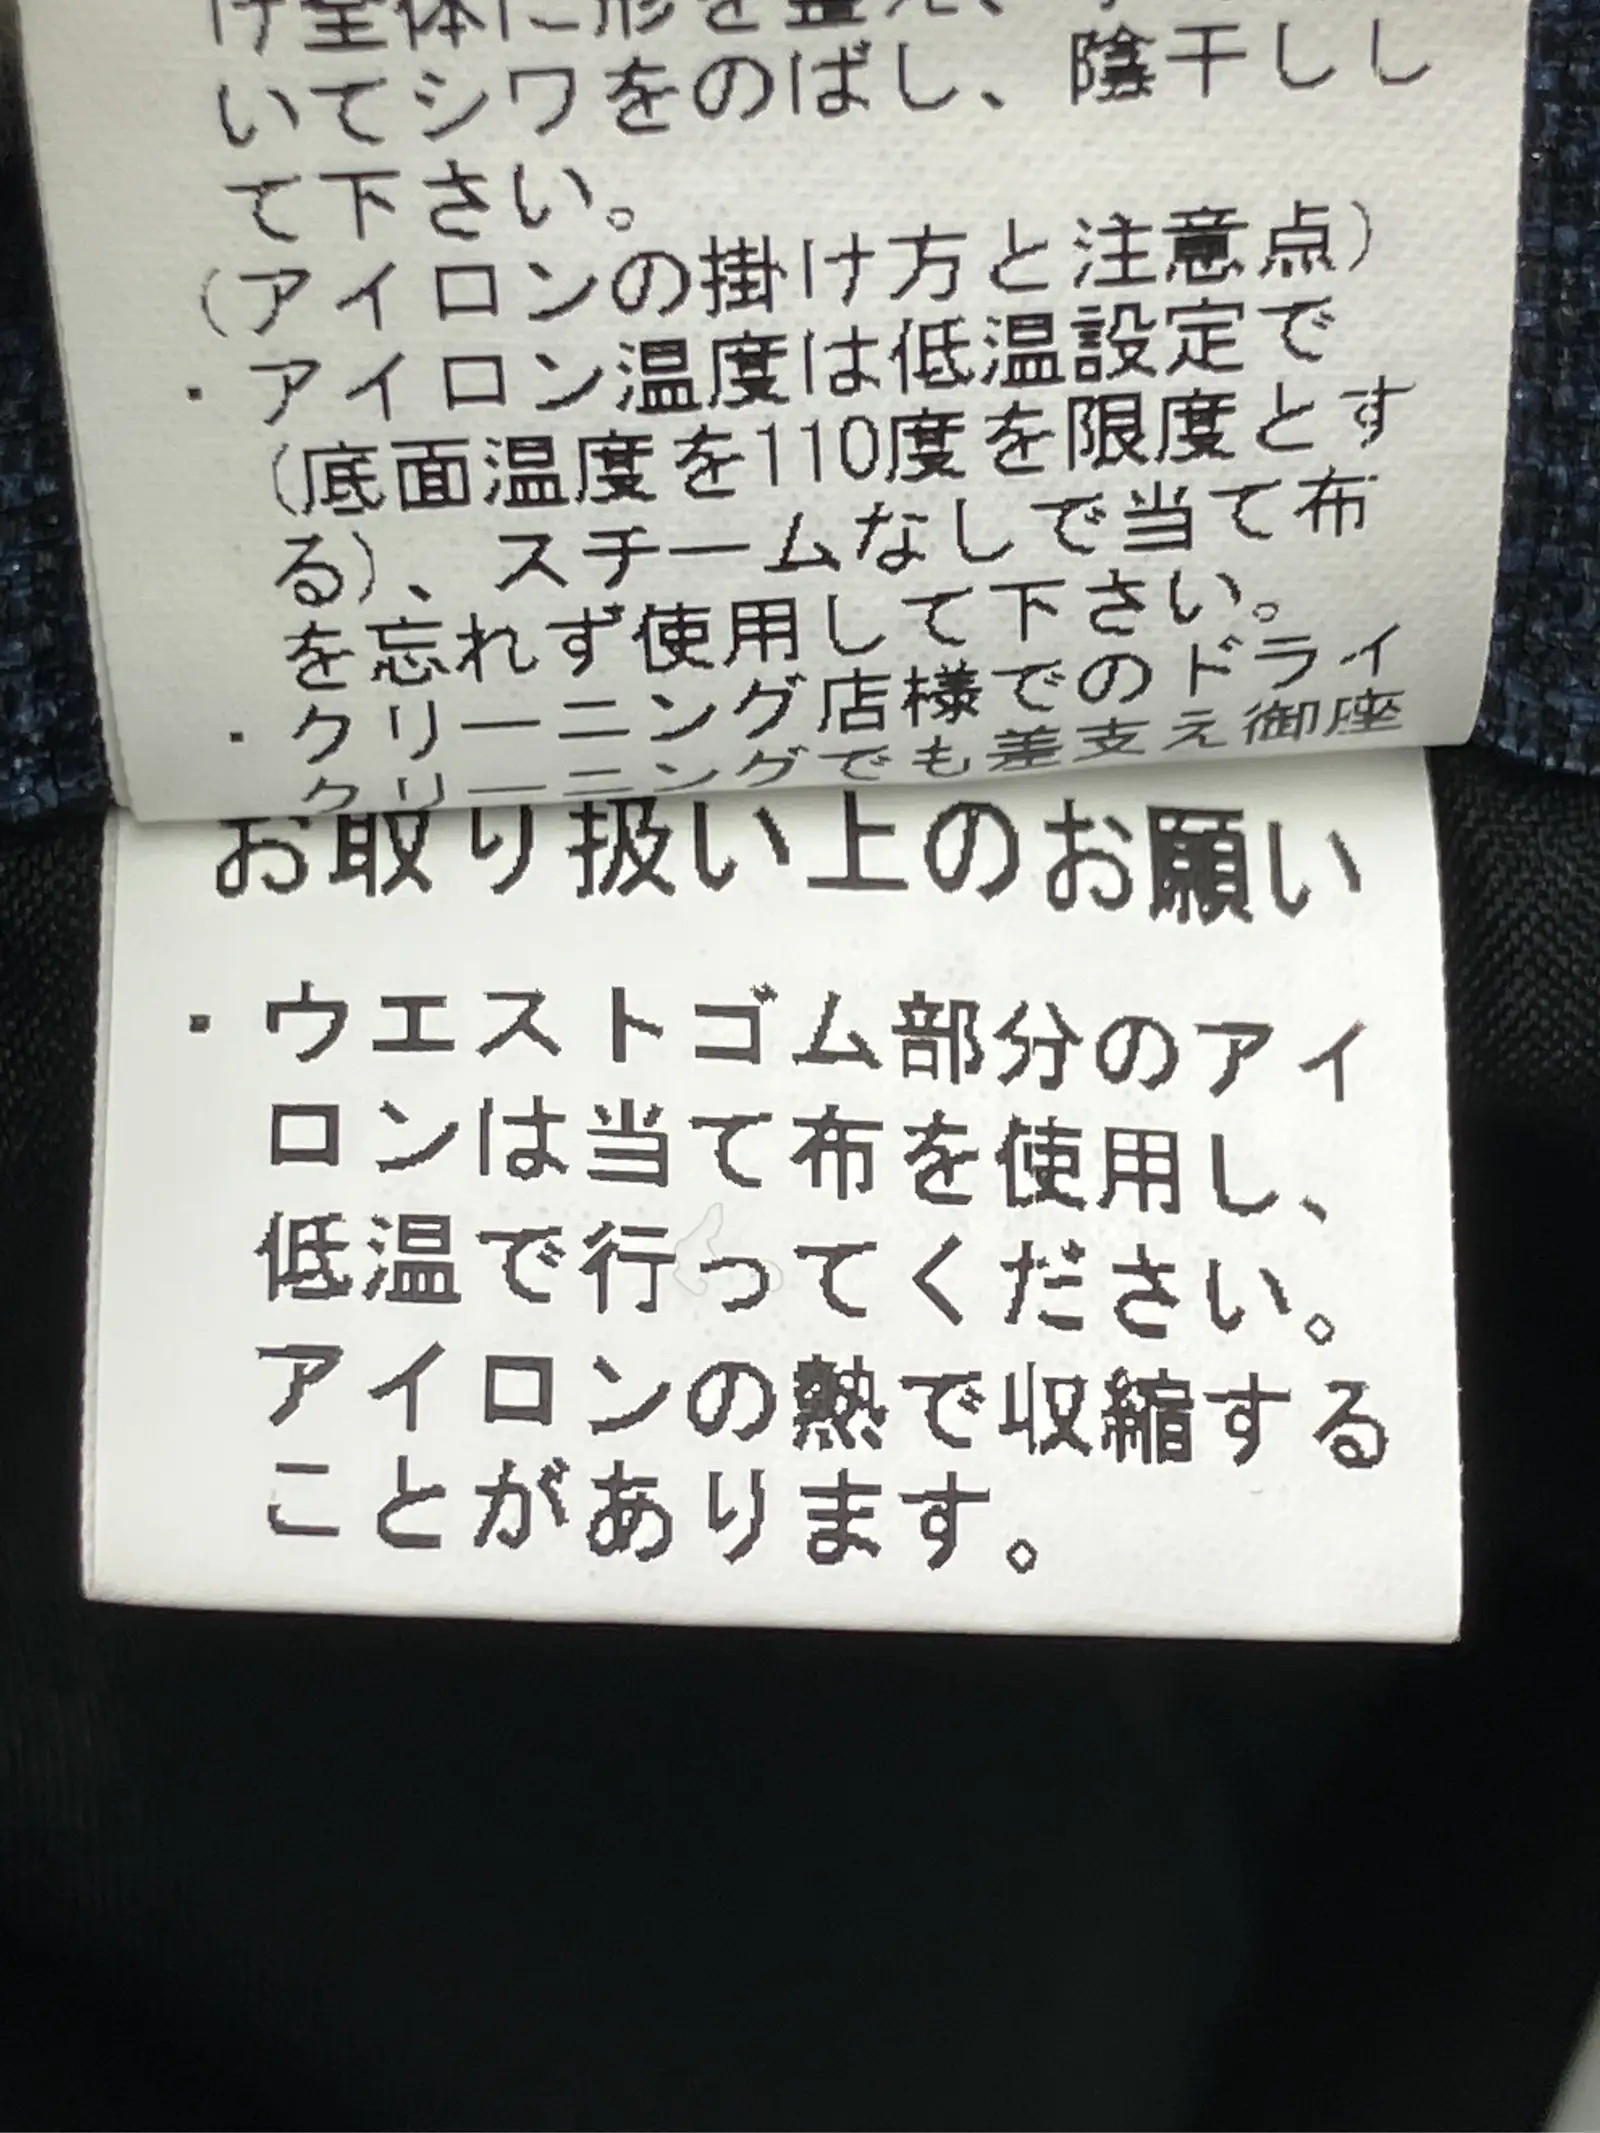 け全体に形を整え、
いてシワをのばし、陰干しし
て下さい。
(アイロンの掛け方と注意点)
・アイロン温度は低温設定で
(底面温度を110度を限度とす
る)、スチームなしで当て布
を忘れず使用して下さい。
・クリーニング店様でのドライ
クリーニングでも差支え御座
お取り扱い上のお願い
・ウエストゴム部分のアイ
ロンは当て布を使用し、
低温で行ってください。
アイロンの熱で収縮する
ことがあります。